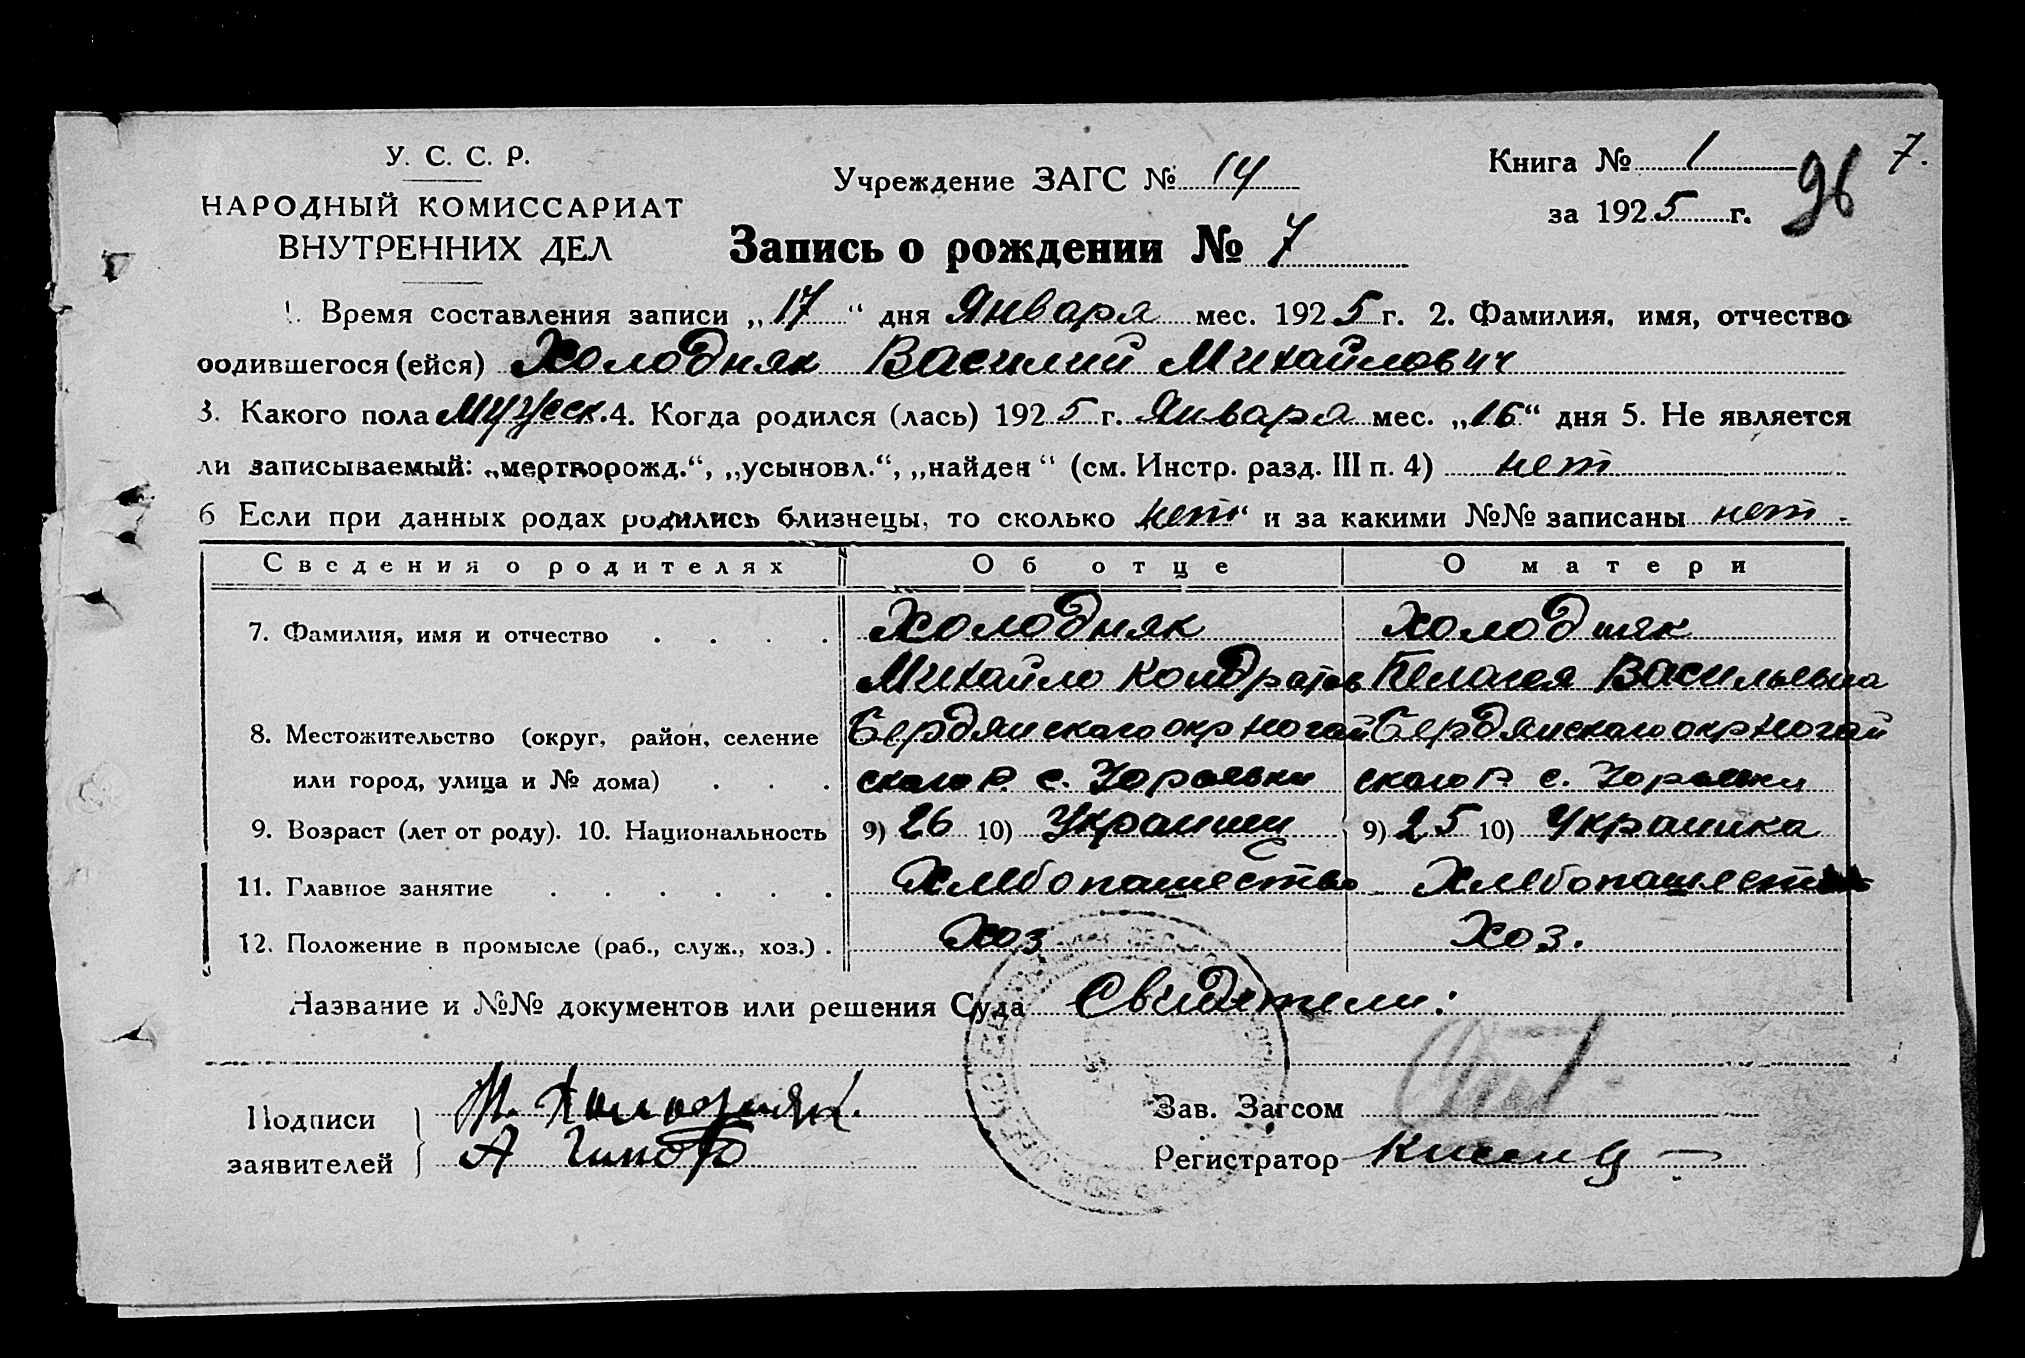 У. С. С. Р.
НАРОДНЫЙ КОМИССАРИАТ
ВНУТРЕННИХ ДЕЛ
Учреждение ЗАГС № 14
Книга № 1
96
7.
за 1925 г.
Запись о рождении № 7
1. Время составления записи „17“ дня Января мес. 1925 г. 2. Фамилия, имя, отчество
родившегося (ейся) Холодняк Василий Михайлович
3. Какого пола мужеск. 4. Когда родился (лась) 1925 г. Января мес. „16“ дня 5. Не является
ли записываемый: „мертворожд.“, „усыновл.“, „найден“ (см. Инстр. разд. III п. 4) нет
6 Если при данных родах родились близнецы, то сколько нет и за какими №№ записаны нет
Сведения о родителях Об отце О матери
7. Фамилия, имя и отчество . . . . Холодняк Холодняк
Михайло Кондратов Пелагея Васильевна
8. Местожительство (округ, район, селение Бердянского окр Ногай Бердянского окр Ногай
или город, улица и № дома) . . . ского Р. с. ского Р с.
9. Возраст (лет от роду). 10. Национальность 9) 26 10) Украинец 9) 25 10) Украинка
11. Главное занятие . . . . . . Хлебопашество Хлебопашество
12. Положение в промысле (раб., служ., хоз.) . Хоз Хоз.
Название и №№ документов или решения Суда Свидетели:
Подписи М. Холодняк. Зав. Загсом
заявителей А Регистратор